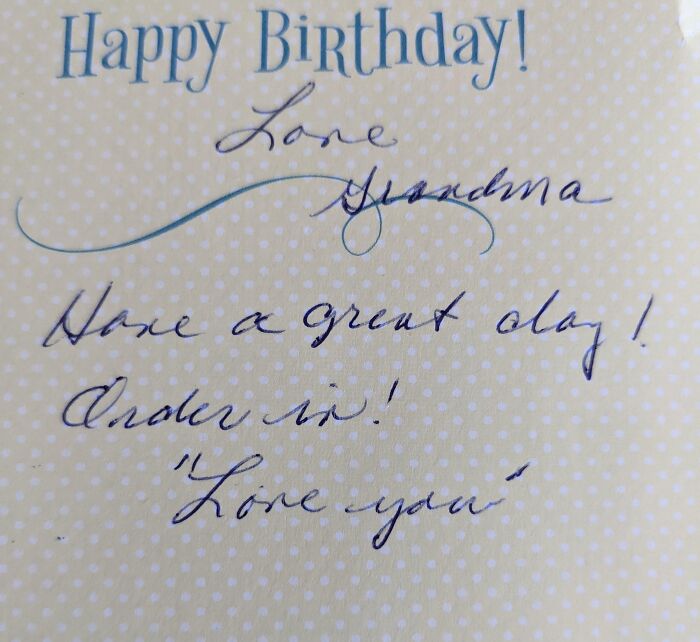 Happy Birthday!
Love
Grandma
Have a great day!
Order in!
"Love you"